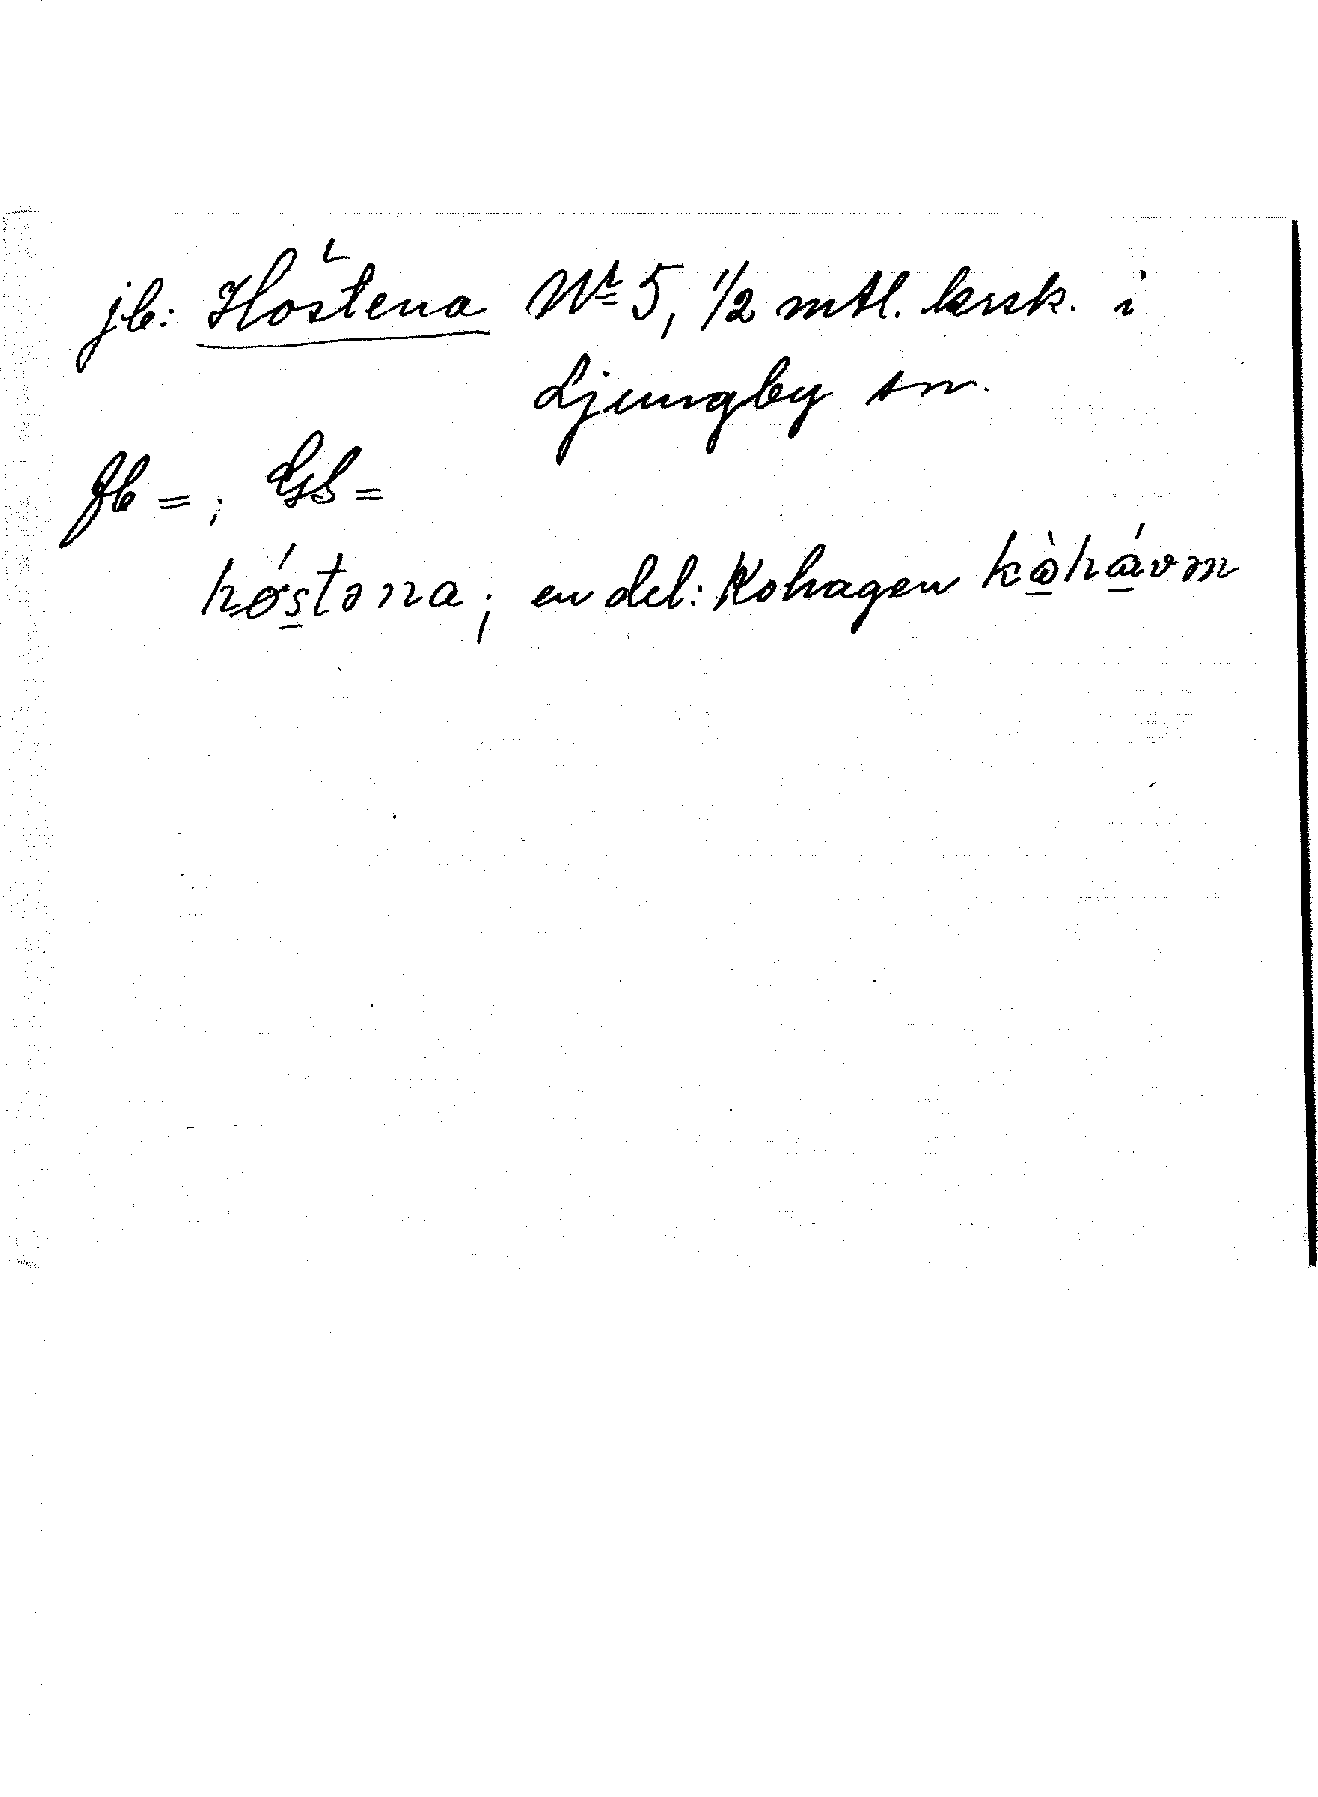 jb: Hostena Nr 5, 1/2 mtl. krsk. i
Ljungby sn.
Jb = ; GS =
hǿstəna; en del: Kohagen kòhávm